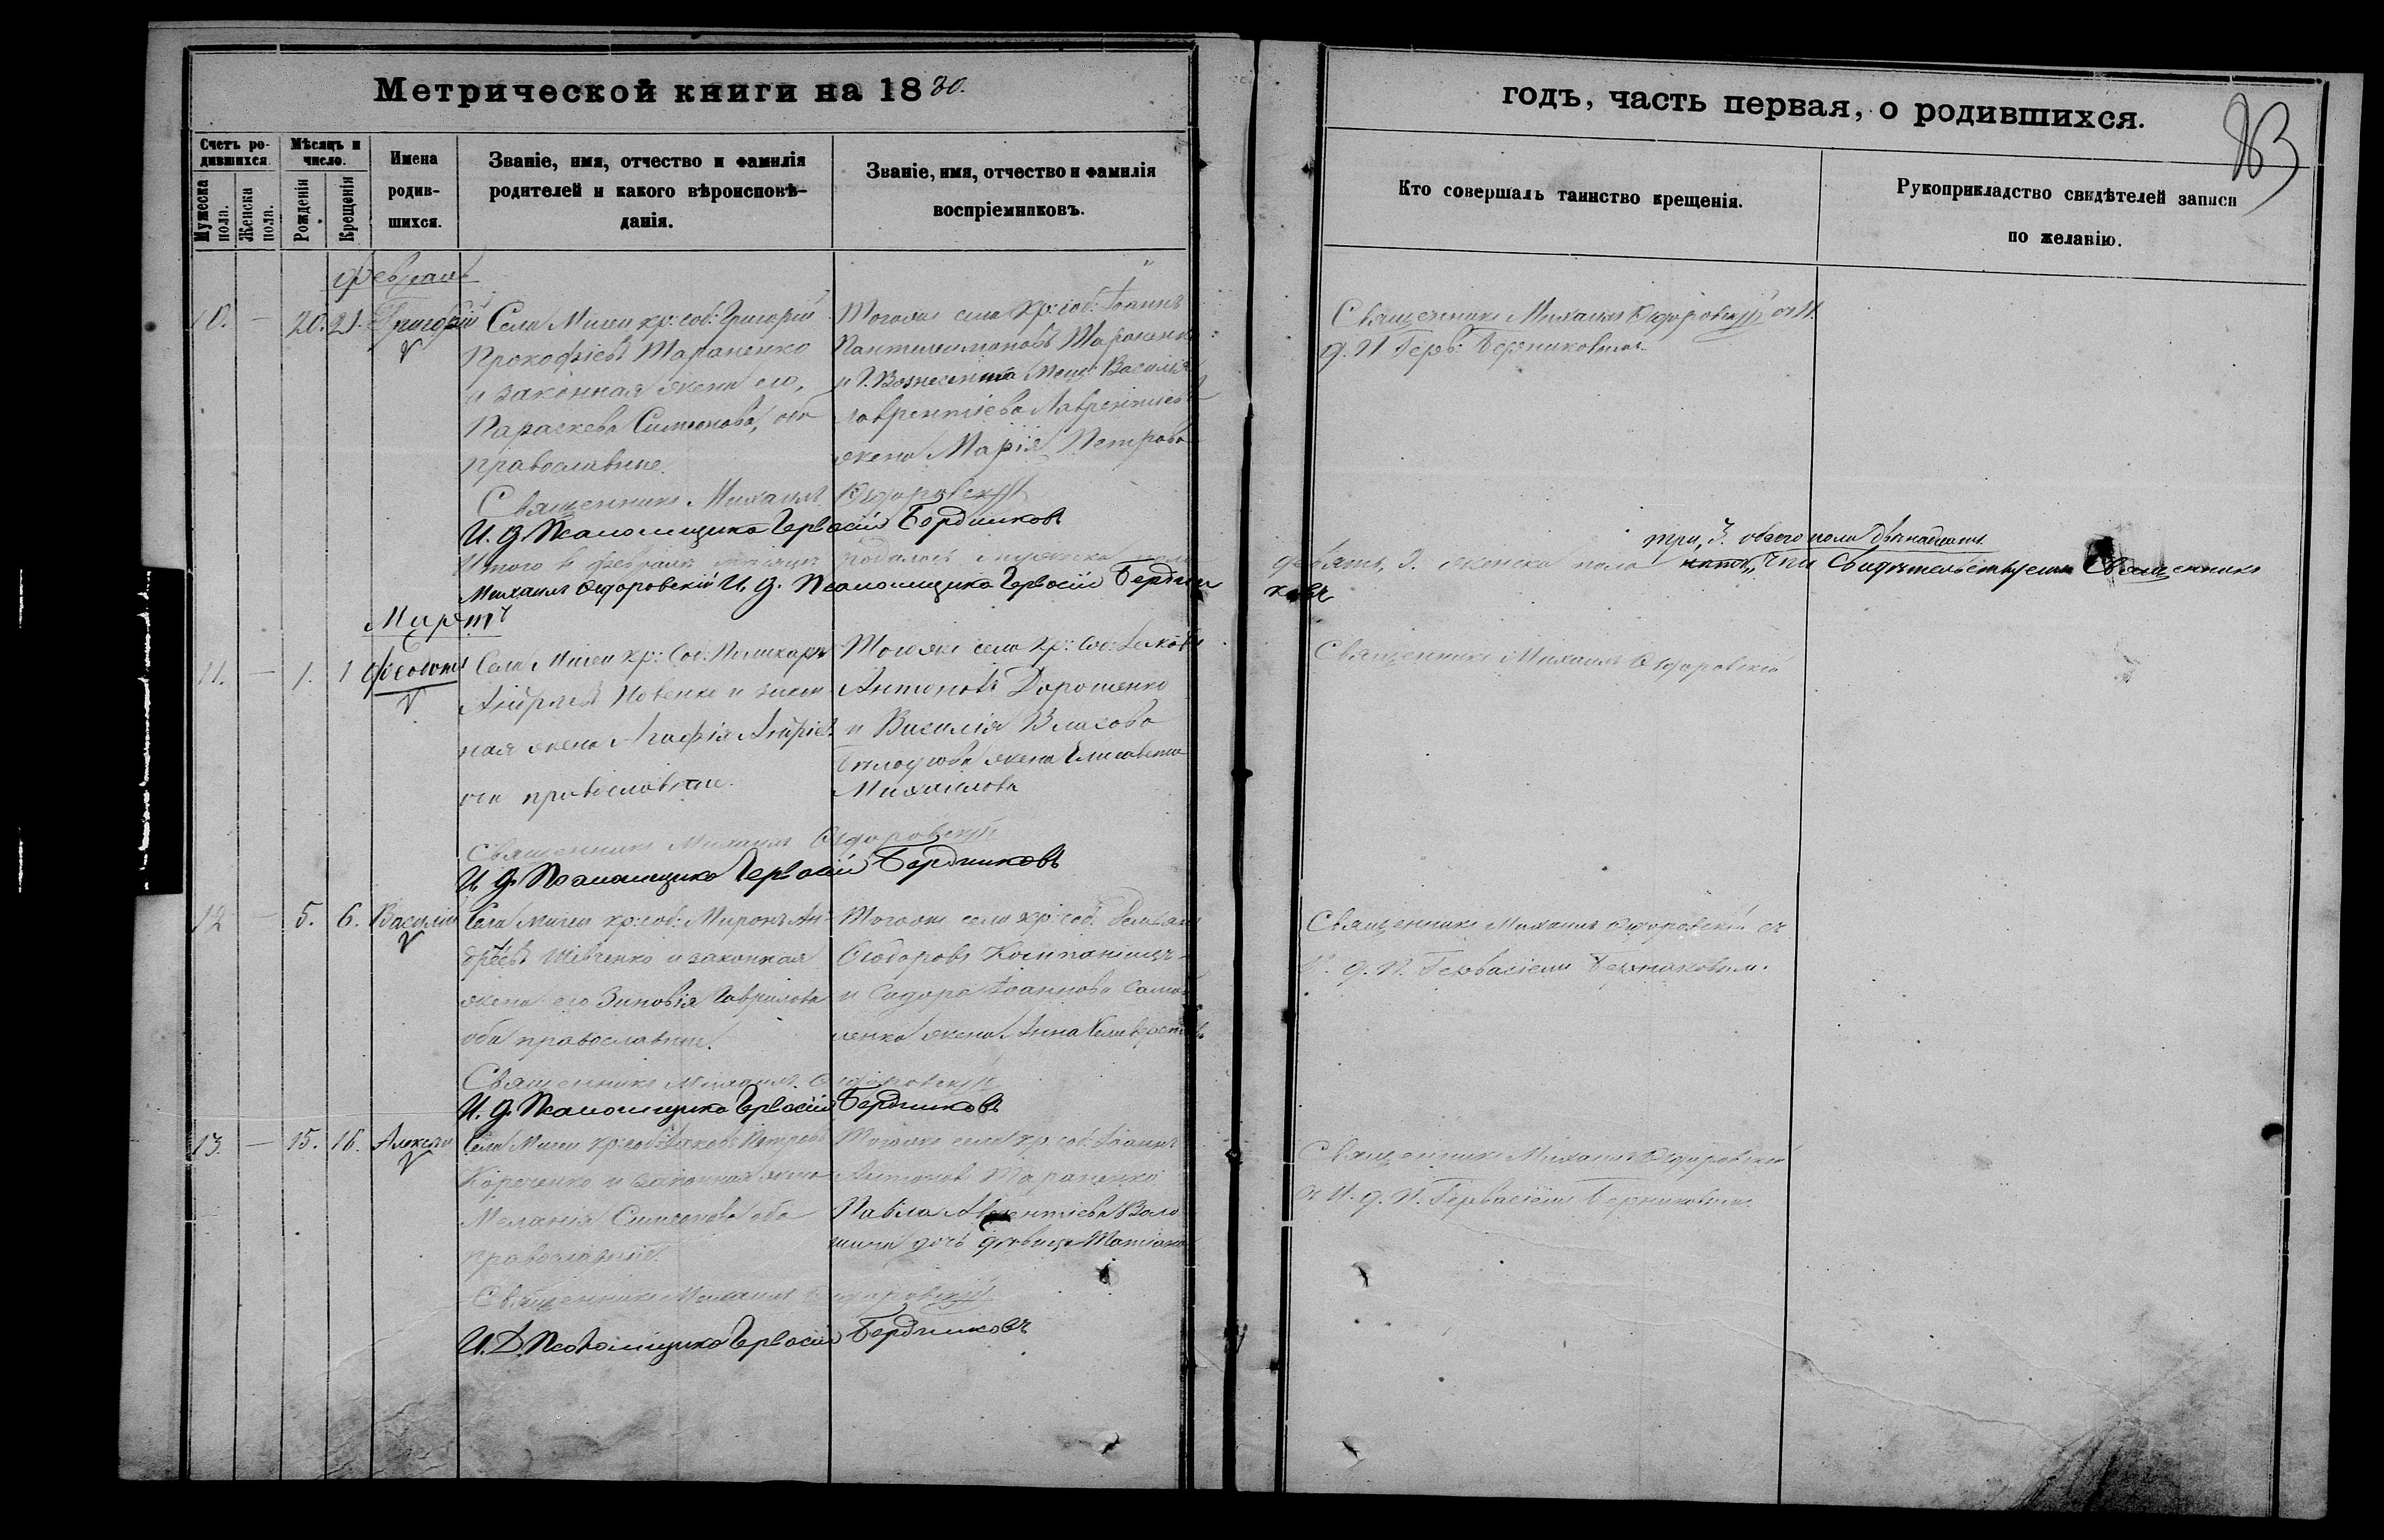 Метрической книги на 1880.
годъ, часть первая, о родившихся.
83
Счетъ ро-
дившихся.
Мужеска пола.
Женска пола.
Мѣсяцъ и
число.
Рожденія
Крещенія
Имена
родив-
шихся.
Званіе, имя, отчество и фамилія
родителей и какого вѣроисповѣ-
данія.
Званіе, имя, отчество и фамилія
воспріемниковъ.
Кто совершалъ таинство крещенія.
Рукоприкладство свидѣтелей записи
по желанію.
Февраль
10. — 20. 21. Григорій
Села Мигеи кр: соб: Григорій
Прокофіевъ Тараненко
и законная жена его,
Параскева Симеонова, оба
православные.
Тогоже села кр: соб: Іоаннъ
Пантелеимоновъ
и Г. Вознесенска мещ: Василія
Лаврентіева
жена Марія Петрова
Священникъ Михаилъ Ѳедоровскій
И. д. Г. Герв: Бердниковымъ
Священникъ Михаилъ Ѳедоровскій
И. д. Псаломщика Гервасій Бердниковъ
Итого в февралѣ месяцѣ родилось мужеска пола девять, 9. женска пола три, 3. обоего пола двѣнадцать
что свидѣтельствуемъ Священникъ
Михаилъ Ѳедоровскій И. д. Псаломщика Гервасій Бердниковъ
Мартъ
11. — 1. 1 Ѳеодотъ
Села Мигеи кр: соб:
и закон
ная жена Агафія
оба православные.
Тогоже села кр: соб: Іаковъ
Антоновъ Дорошенко
и Василія Власова
жена Елисавета
Михаилова
Священникъ Михаилъ Ѳедоровскій
Священникъ Михаилъ Ѳедоровскій
И. д. Псаломщика Гервасій Бердниковъ
12 — 5. 6. Василій
Села Мигеи кр: соб: Миронъ Ан-
дреевъ Шевченко и законная
жена его Зиновія Гаврилова
оба православные.
Тогоже села кр: соб:
Ѳеодоровъ
и Сидора Іоаннова
жена Анна
Священникъ Михаилъ Ѳедоровскій съ
И. д. П. Гервасіемъ Бердниковымъ.
Священникъ Михаилъ Ѳедоровскій
И. д. Псаломщика Гервасій Бердниковъ
13. — 15. 16. Алексій
Села Мигеи кр: соб: Іаковъ Петровъ
и законная жена
Меланія Симеонова оба
православные.
Тогоже села кр: соб: Іоаннъ
Антоновъ Тараненко
Павла
дочь девица Татіана
Священникъ Михаилъ Ѳедоровскій
съ И. д. П. Гервасіемъ Бердниковымъ
Священникъ Михаилъ Ѳедоровскій
И. Д. Псаломщика Гервасій Бердниковъ